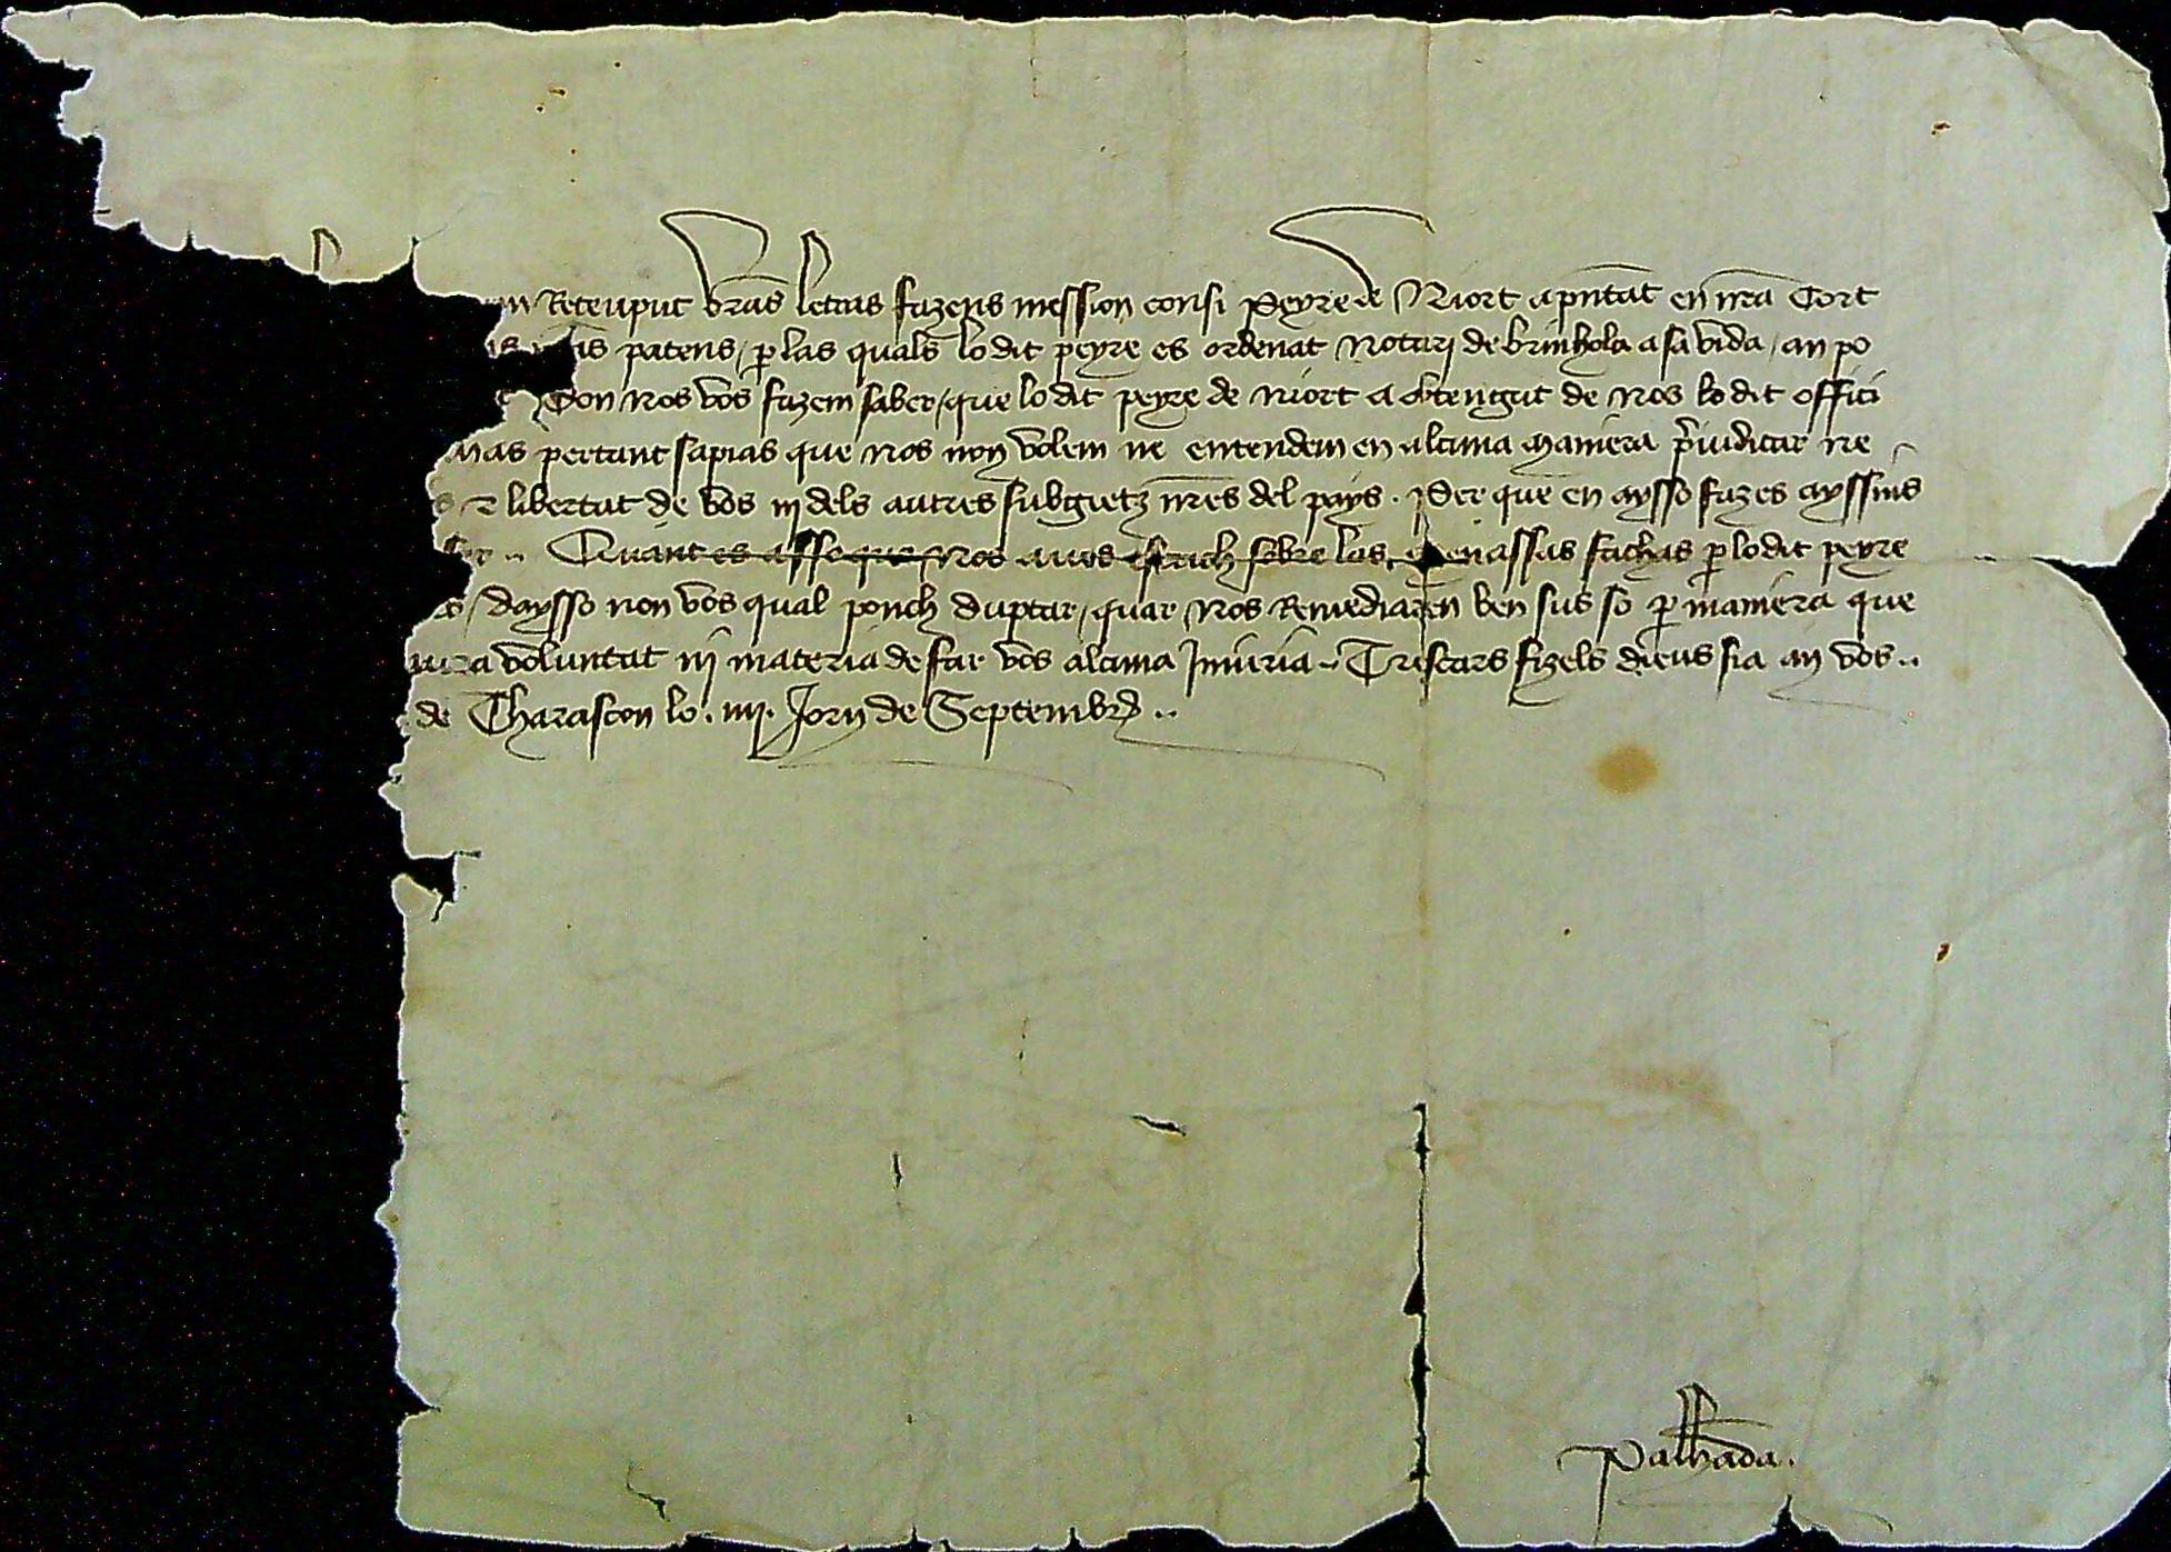 Receuput vras letras fazens mession consi Peyre de Niort a pntat en nra Cort
patens / p las quals lo dit peyre es ordenat Notari de brinhola a sa vida / an po
Don nos vos fazem saber / que lo dit peyre de niort a obtengut de nos lo dit offici
mas pertant sapias que nos non volem ne entendem en alcuna maniera preiudicar ne
libertat de vos ni dels autres subgietz nres del pays . Per que en aysso fazes ayssins
Quant es asso que nos aves escrich sobre las menassas fachas p lo dit peyre
/ daysso non vos qual ponch duptar / quar nos Remediaren ben sus so p maniera que
voluntat ni materia de far vos alcuna Iniuria .. Trescars fizels dieus sia an vos ..
de Tharascon lo . iiii . Iorn de Septembre ..
Palhada .